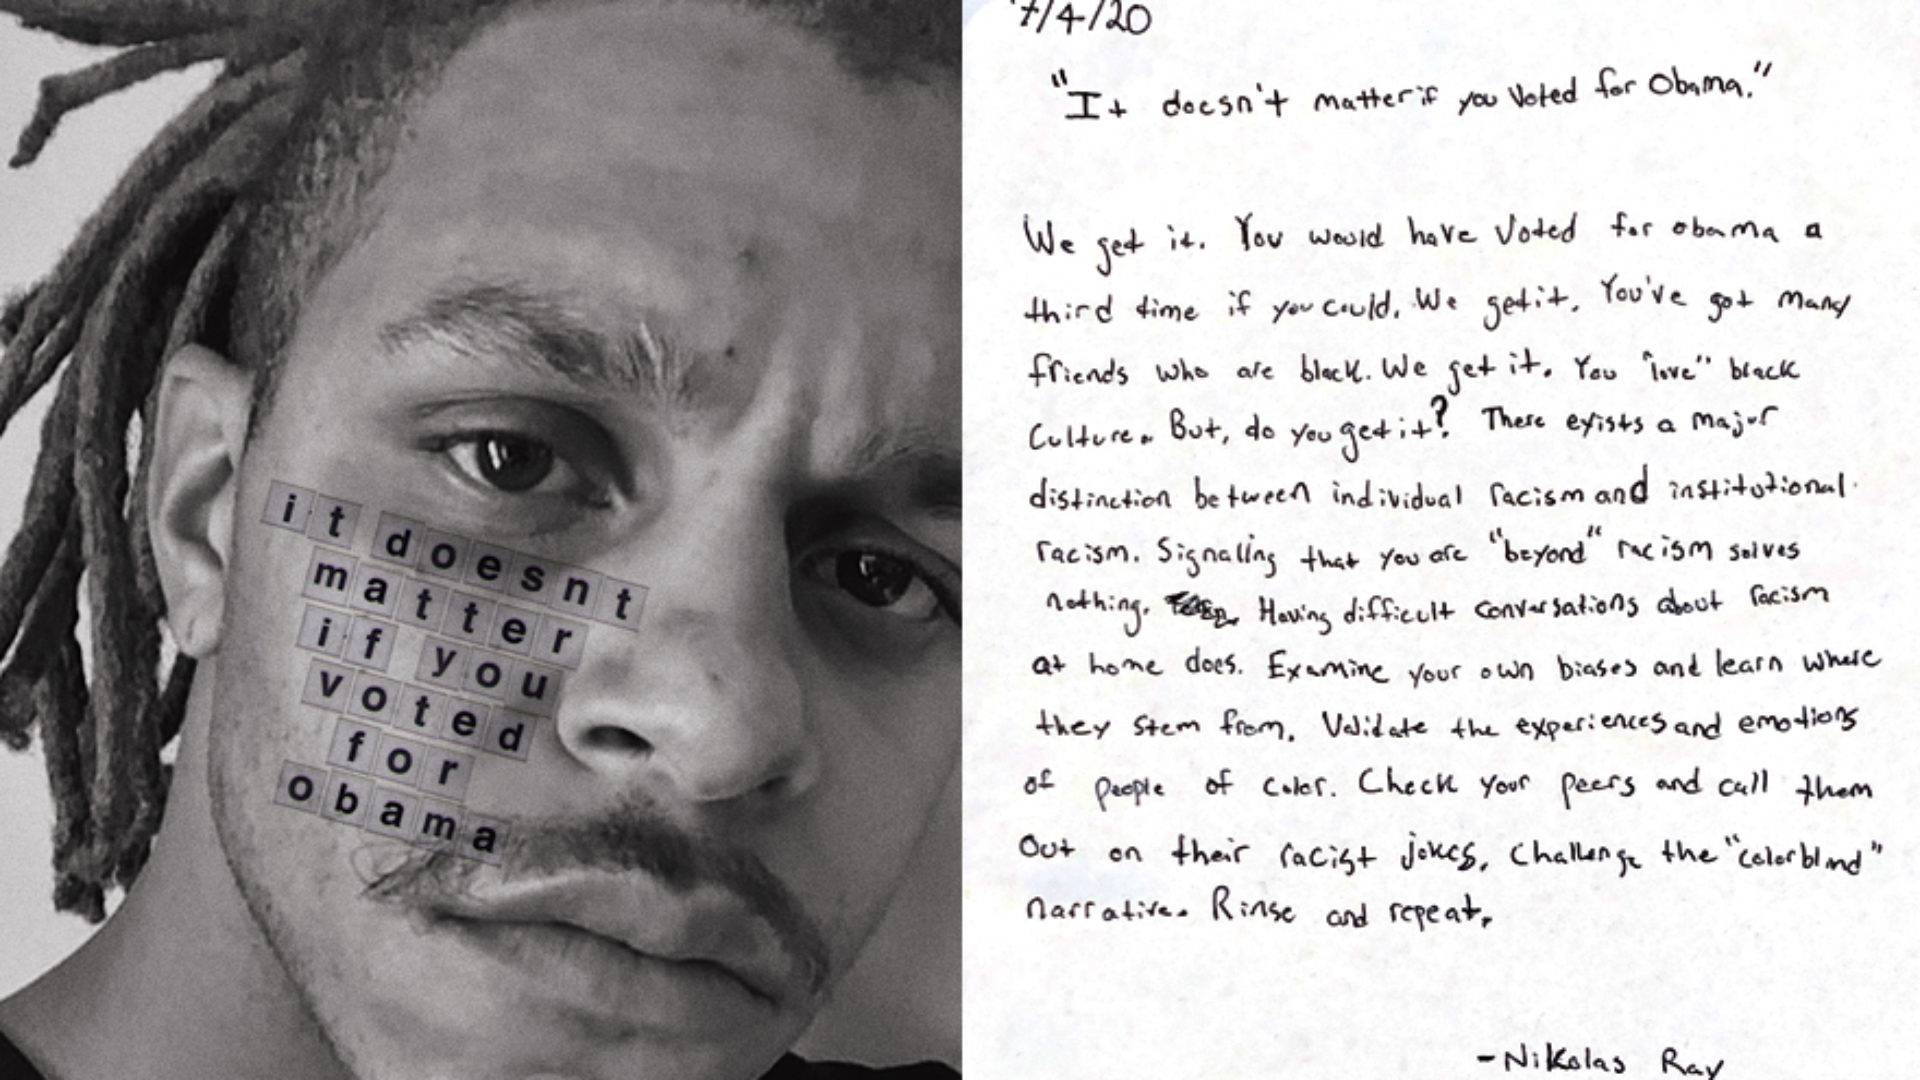 it doesnt
matter
if you
voted
for
obama
7/4/20
"It doesn't matter if you Voted for Obama."
We get it. You would have Voted for obama a
third time if you could. We get it. You've got many
friends who are black. We get it. You "love" black
Culture. But, do you get it? There exists a major
distinction between individual racism and institutional
racism. Signaling that you are "beyond" racism solves
nothing. Having difficult conversations about racism
at home does. Examine your own biases and learn where
they stem from. Validate the experiences and emotions
of people of color. Check your peers and call them
Out on their racist jokes. Challenge the "colorblind"
narrative. Rinse and repeat.
-Nikolas Ray